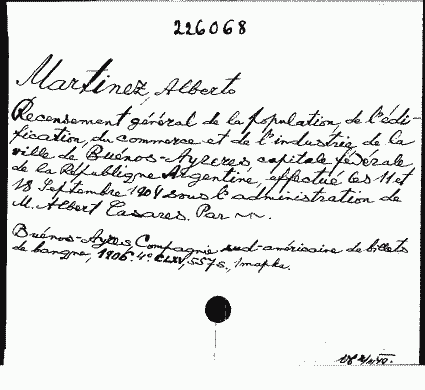 226068
Martinez, Alberto
Recensement général de la population, de l'édi-
fication, du commerce et de l'industrie de la
ville de Buénos-Ayeres capitale fédérale
de la République Argentine, effectué les 11 et
18 Septembre 1904 sous l'administration de
M. Albert Casares. Par
Buénos-Ayres, Compagnie sud-américaine de billets
de banque, 1906. 4° CLXV, 557 s., 1 mapka.